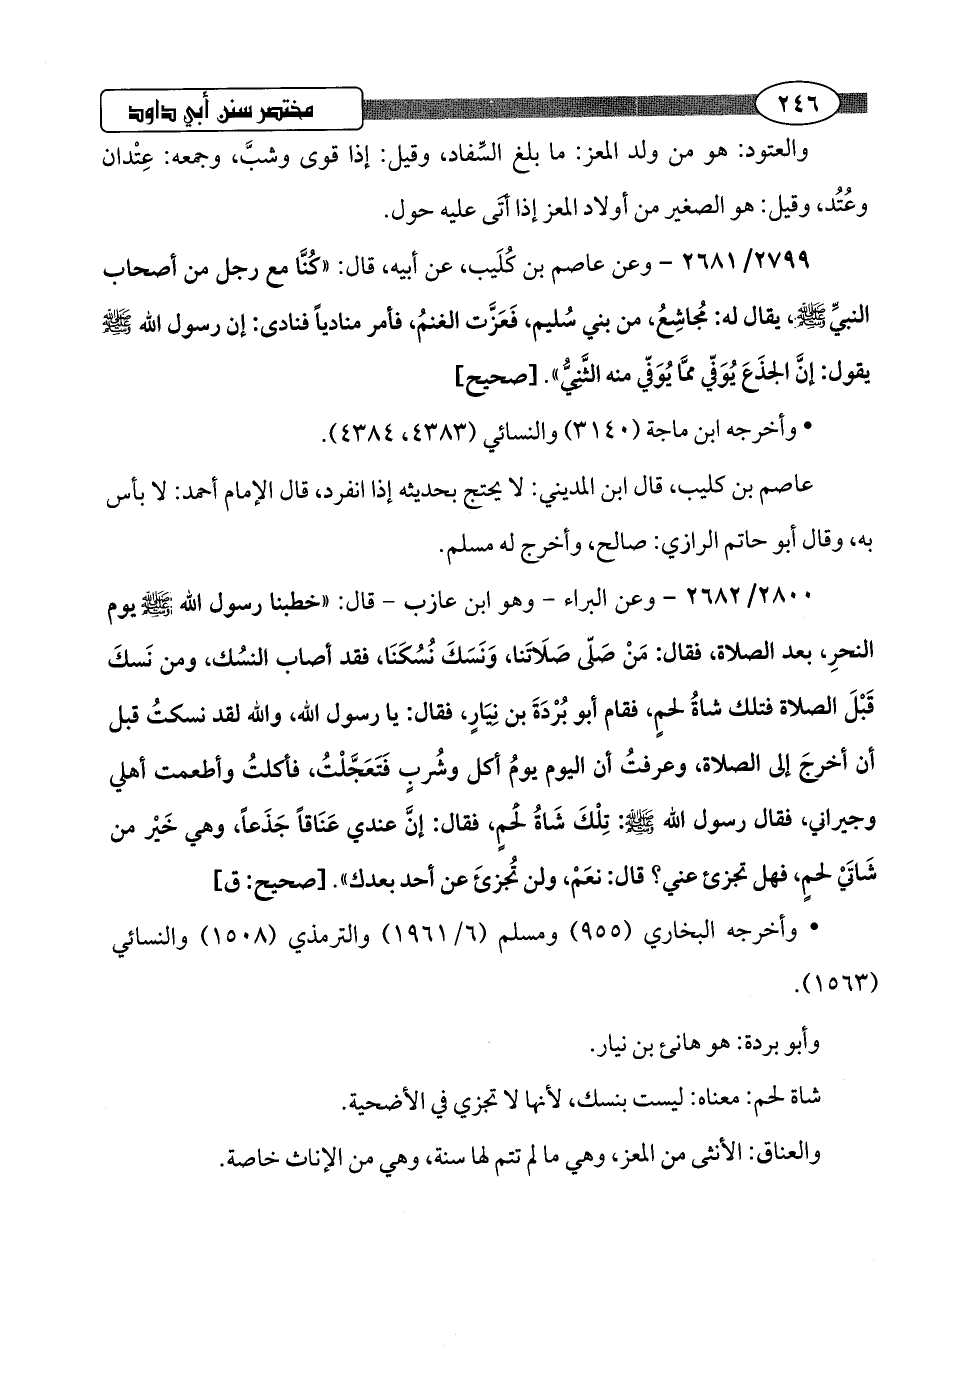 ٢٤٦
مختصر سنن أبي داود
والعتود: هو من ولد المعز: ما بلغ السِّفاد، وقيل: إذا قوى وشبَّ، وجمعه: عِتْدان
وعُتُد، وقيل: هو الصغير من أولاد المعز إذا أتَى عليه حول.
٢٦٨١/٢٧٩٩ - وعن عاصم بن كُلَيب، عن أبيه، قال: «كُنَّا مع رجل من أصحاب
النبيِّ ﷺ، يقال له: مُجاشِعُ، من بني سُليم، فَعَزَّت الغنمُ، فأمر منادياً فنادى: إن رسول الله ﷺ
يقول: إنَّ الجذَعَ يُوَفِّي ممَّا يُوَفِّي منه الثَّنِيُّ». [صحيح]
• وأخرجه ابن ماجة (٣١٤٠) والنسائي (٤٣٨٣، ٤٣٨٤).
عاصم بن كليب، قال ابن المديني: لا يحتج بحديثه إذا انفرد، قال الإمام أحمد: لا بأس
به، وقال أبو حاتم الرازي: صالح، وأخرج له مسلم.
٢٦٨٢/٢٨٠٠ - وعن البراء - وهو ابن عازب - قال: «خطبنا رسول الله ﷺ يوم
النحرِ، بعد الصلاة، فقال: مَنْ صَلَّى صَلَاتَنا، وَنَسَكَ نُسُكَنَا، فقد أصاب النسُك، ومن نَسكَ
قَبْلَ الصلاة فتلك شاةُ لحمٍ، فقام أبو بُرْدَةَ بن نِيَارٍ، فقال: يا رسول الله، والله لقد نسكتُ قبل
أن أخرجَ إلى الصلاة، وعرفتُ أن اليوم يومُ أكل وشُربٍ فَتَعَجَّلْتُ، فأكلتُ وأطعمت أهلي
وجيراني، فقال رسول الله ﷺ: تِلْكَ شَاةُ لَحْمٍ، فقال: إنَّ عندي عَنَاقاً جَذَعاً، وهي خَيْر من
شَاتَيْ لحمٍ، فهل تجزئ عني؟ قال: نعَمْ، ولن تُجزئَ عن أحد بعدك». [صحيح: ق]
• وأخرجه البخاري (٩٥٥) ومسلم (١٩٦١/٦) والترمذي (١٥٠٨) والنسائي
(١٥٦٣).
وأبو بردة: هو هانئ بن نيار.
شاة لحم: معناه: ليست بنسك، لأنها لا تجزي في الأضحية.
والعناق: الأنثى من المعز، وهي ما لم تتم لها سنة، وهي من الإناث خاصة.